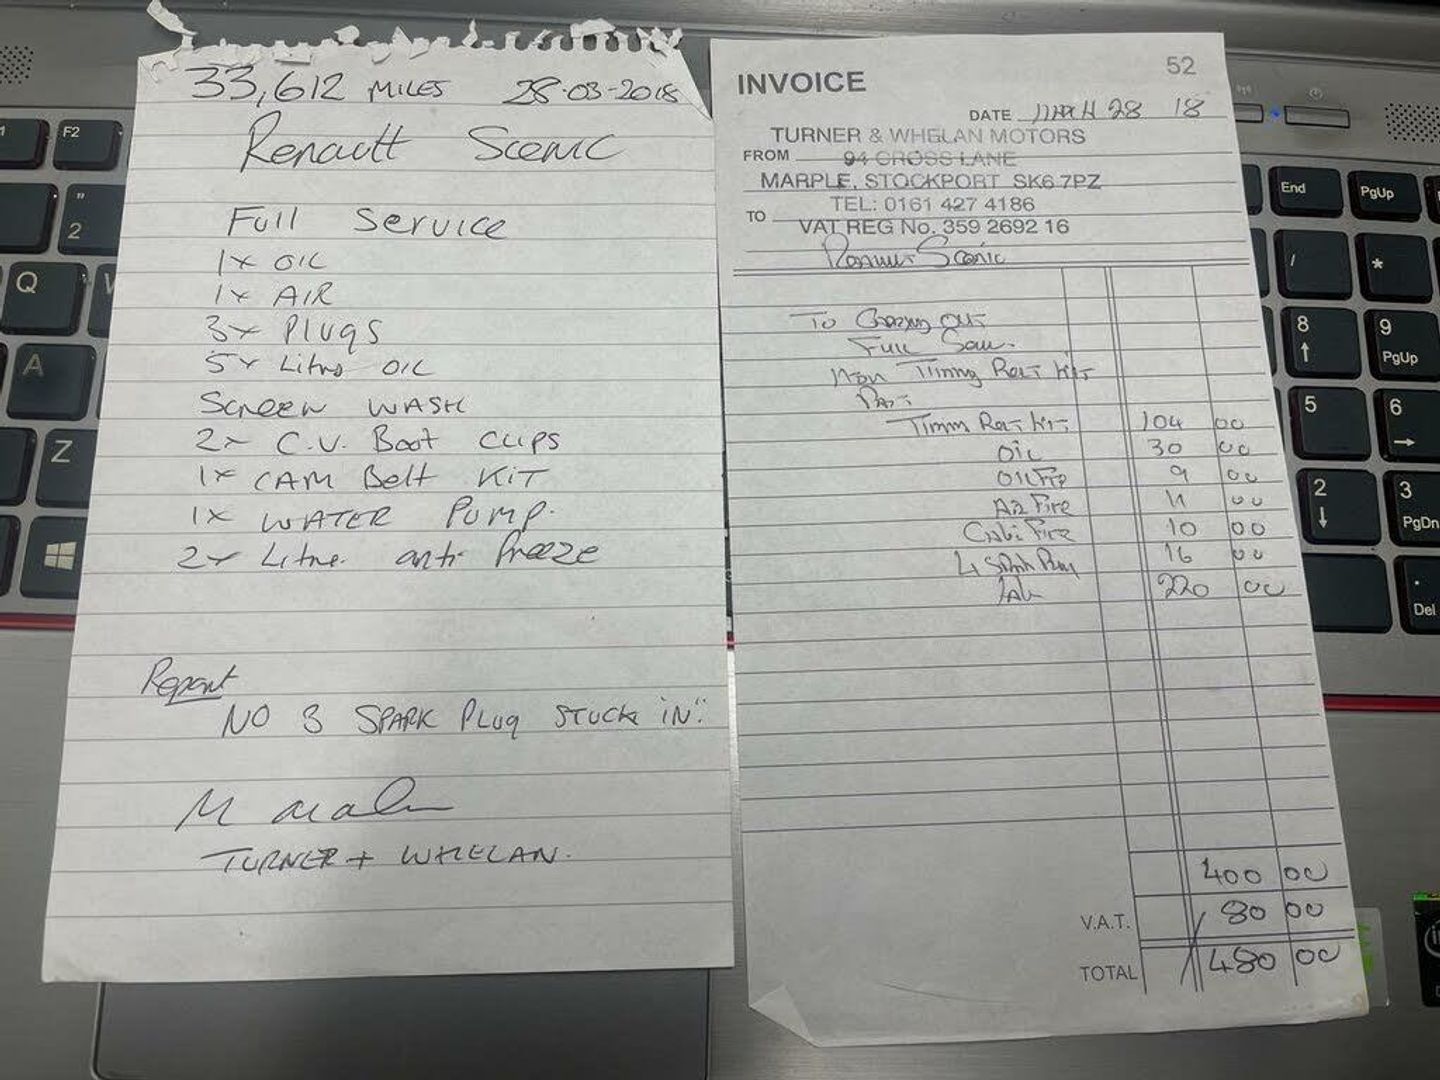 33,612 MILES 28-03-2018
Renault Scenic
Full Service
1x OIL
1x AIR
3x Plugs
5x Litre OIL
SCREEN WASH
2x C.V. Boot Clips
1x CAM Belt KIT
1x WATER PUMP.
2x Litre anti freeze
Report
NO 3 SPARK Plug STUCK IN"
M
TURNER + WHELAN.
52
INVOICE
DATE MARCH 28 18
TURNER & WHELAN MOTORS
FROM 94 CROSS LANE
MARPLE, STOCKPORT SK6 7PZ
TEL: 0161 427 4186
TO
VAT REG No. 359 2692 16
Renault Scenic
To Carrying out
Full
Timing Belt Kit
Timing Belt Kit 104 00
OIL 30 00
OIL 9 00
Air 11 00
10 00
4 Spark Plug 16 00
Lab 220 00
400 00
V.A.T. 80 00
TOTAL 480 00
F2
"
2
Q
A
Z
End
PgUp
/
*
8
9
PgUp
5
6
2
3
PgDn
.
Del